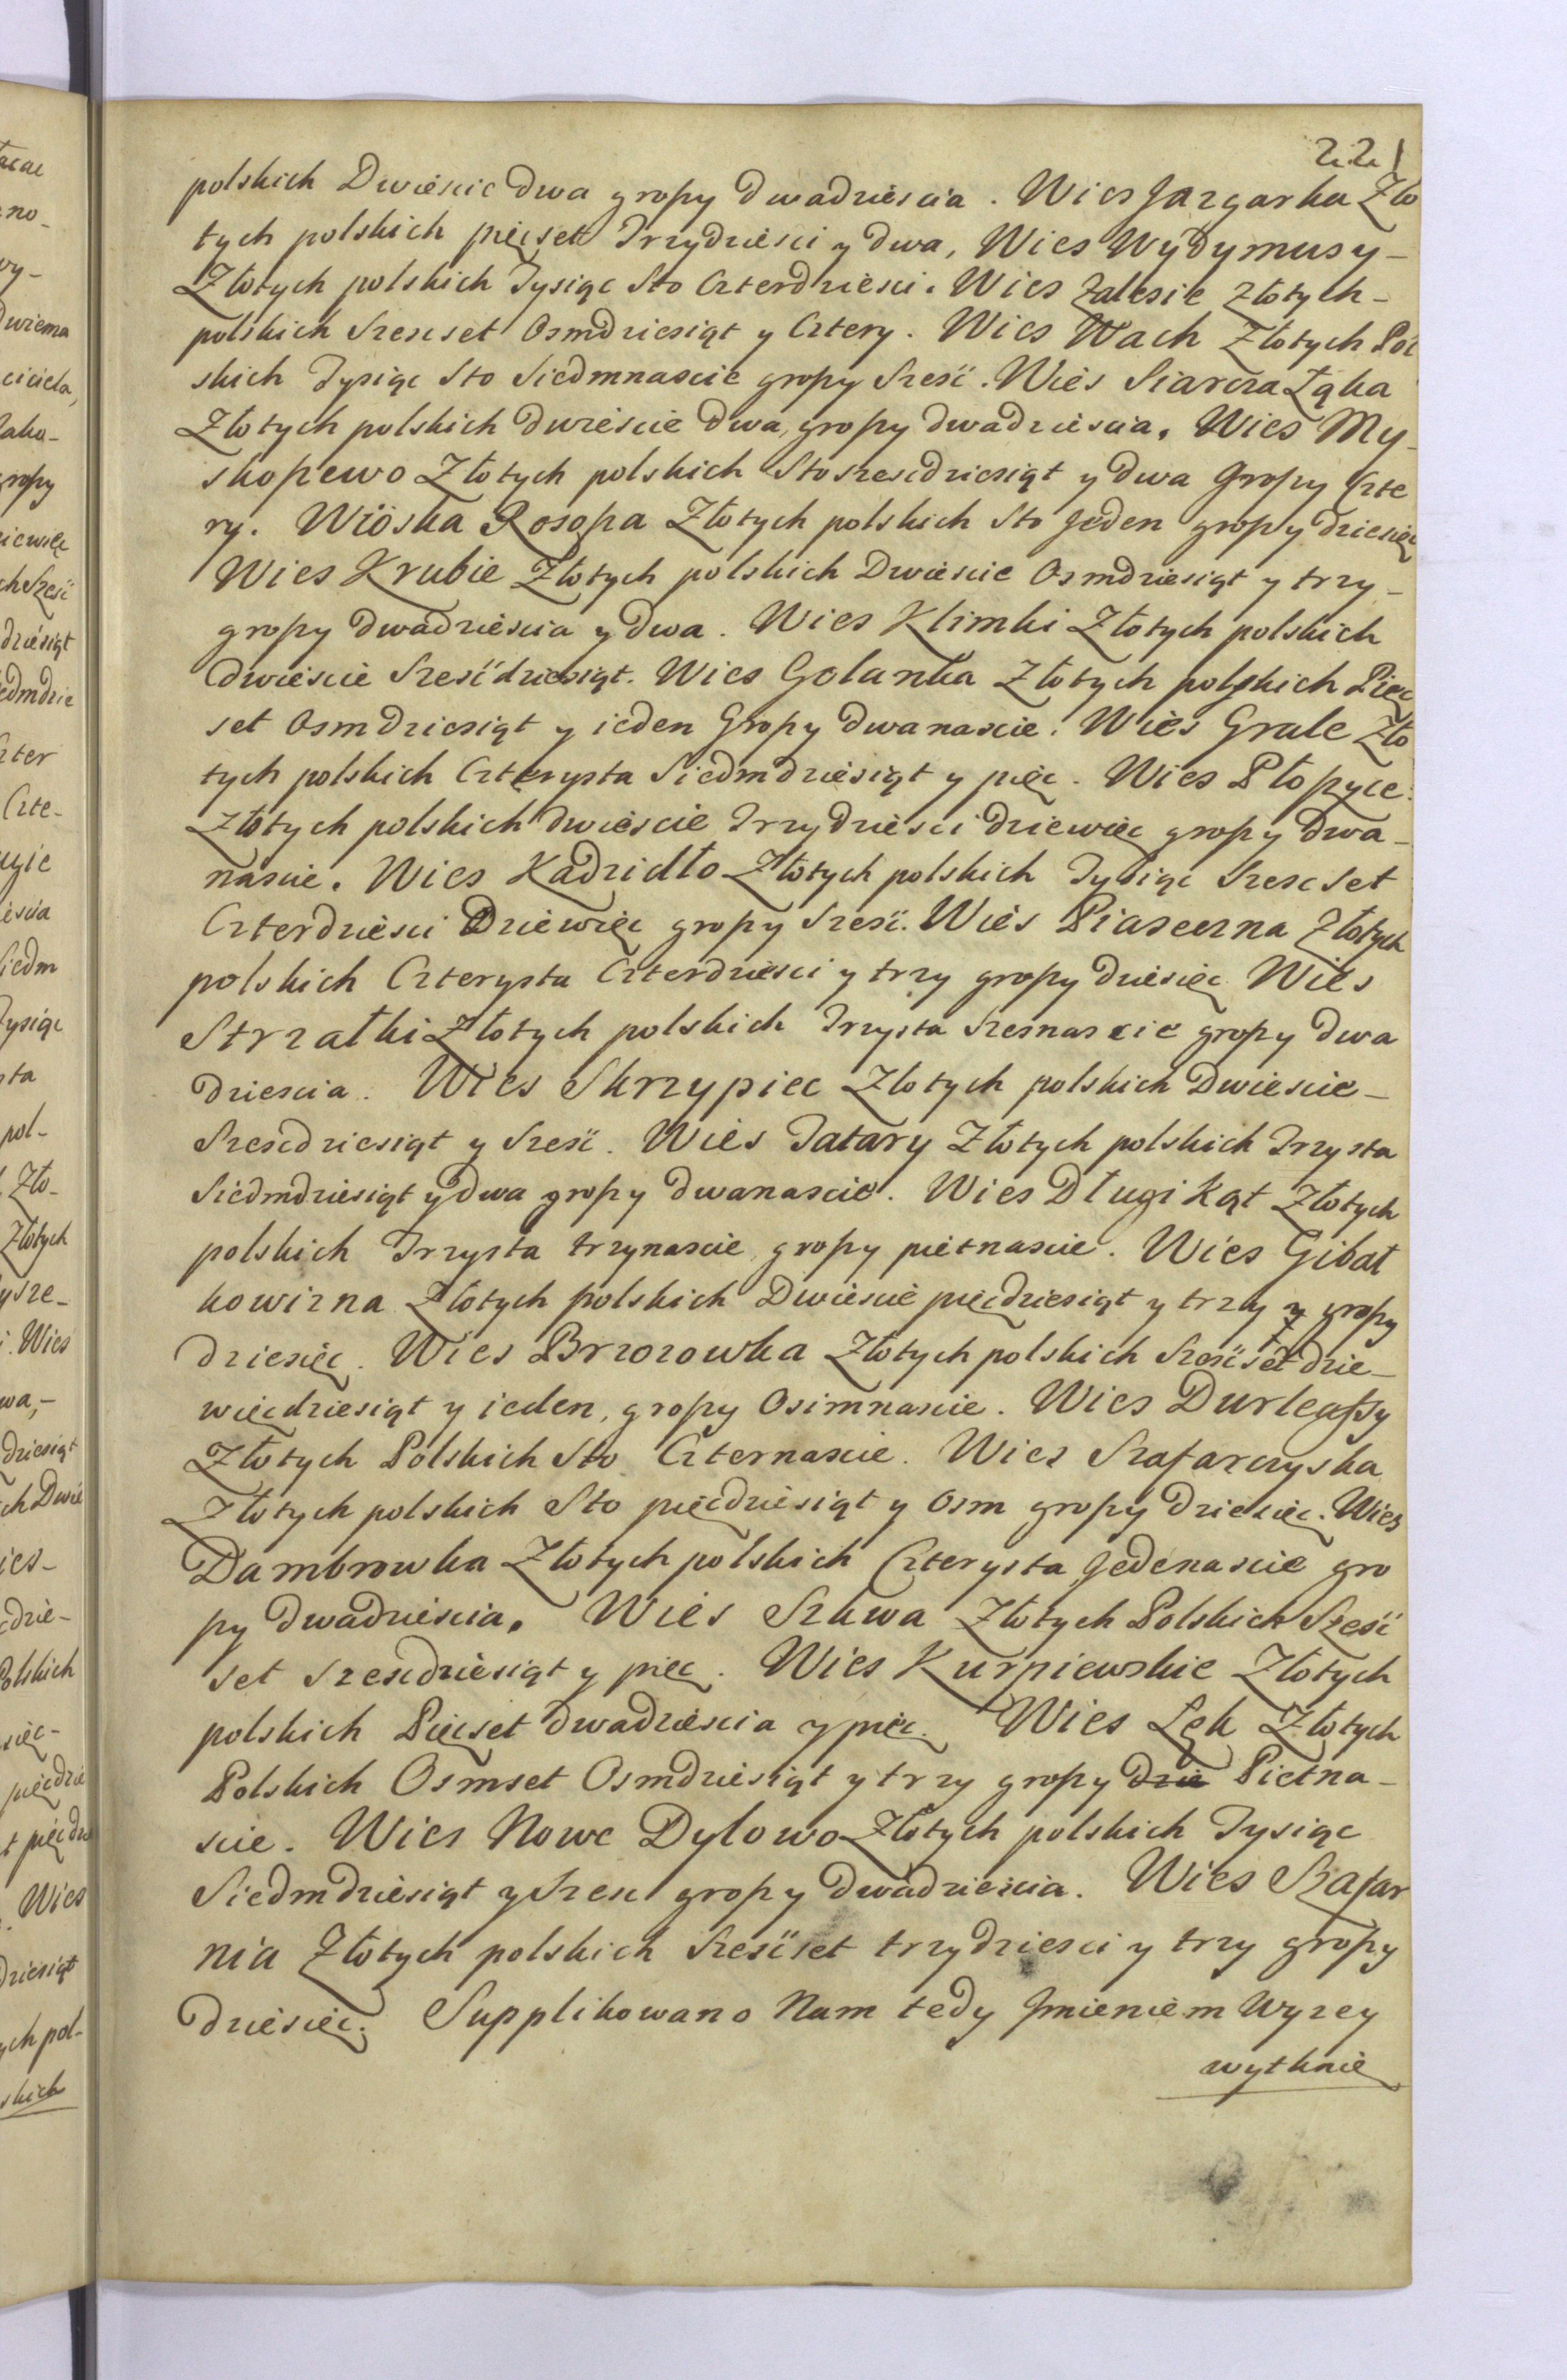 221
polskich Dwiescie Dwa groszy Dwadziescia. Wies Jazgarka Zło
tych polskich pięcset Trzydziesci y dwa, Wies Wydymusy-
Złotych polskich Tysiąc Sto Czterdziesci. Wies Zalesie Złotych-
polskich Szescset Osmdziesiąt y Cztery. Wies Wach Złotych Pol
skich Tysiąc Sto Siedmnascie groszy Szesć. Wies Siarcza Łąka
Złotych polskich dwiescie Dwa, groszy dwadziescia. Wies My-
skoszewo Złotych polskich Sto szescdziesiąt y dwa Groszy Czte
ry. Wioska Rososza Złotych polskich Sto Jeden groszy dziesięc
Wies Krubie Złotych polskich Dwiescie Osmdziesiąt y trzy-
groszy dwadziescia y dwa. Wies Klimki Złotych polskich
dwiescie Szesćdziesiąt. Wies Golanka Złotych polskich Pięc
set Osmdziesiąt y ieden Groszy Dwanascie. Wies Grale Zło
tych polskich Czterysta Siedmdziesiąt y pięc. Wies Płoszyce
Złotych polskich dwiescie Trzydziesci dziewięc groszy Dwa-
nascie. Wies Kadzidło Złotych polskich Tysiąc Szescset
Czterdziesci Dziewięc groszy Szesć. Wies Piaseczna Złotych
polskich Czterysta Czterdziesci y trzy groszy dziesięc Wies
Strzałki Złotych polskich Trzysta Szesnascie groszy Dwa
dziescia. Wies Skrzypiec Złotych polskich Dwiescie-
Szescdziesiąt y Szesć. Wies Tatary Złotych polskich Trzysta
Siedmdziesiąt y Dwa groszy Dwanascie. Wies Długi Kąt Złotych
polskich Trzysta trzynascie groszy piętnascie. Wies Gibał
kowizna Złotych polskich Dwiescie pięcdziesiąt y trzy y groszy
dziesięc. Wies Brzozowka Złotych polskich Szesćset dzie-
więcdziesiąt y ieden, groszy Osimnascie. Wies Durlęassy
Złotych Polskich Sto Czternascie. Wies Szafarczyska
Złotych polskich Sto pięcdziesiąt y Osm groszy Dziesięc. Wies
Dambrowka Złotych polskich Czterysta Jedenascie gro
szy dwadziescia. Wies Szkwa Złotych Polskich Szesć
set Szescdziesiąt y pięc. Wies Kurpiewskie Złotych
polskich Pięcset dwadziescia y pięc. Wies Lęk Złotych
Polskich Osmset Osmdziesiąt y trzy groszy dzie Piętna-
scie. Wies Nowe Dylowo Złotych polskich Tysiąc
Siedmdziesiąt y Szesc groszy Dwadziescia. Wies Szafar
nia Złotych polskich Szesćset trzydziesci y trzy groszy
Dziesięc. Supplikowano Nam tedy Jmieniem Wyzey
wytknię